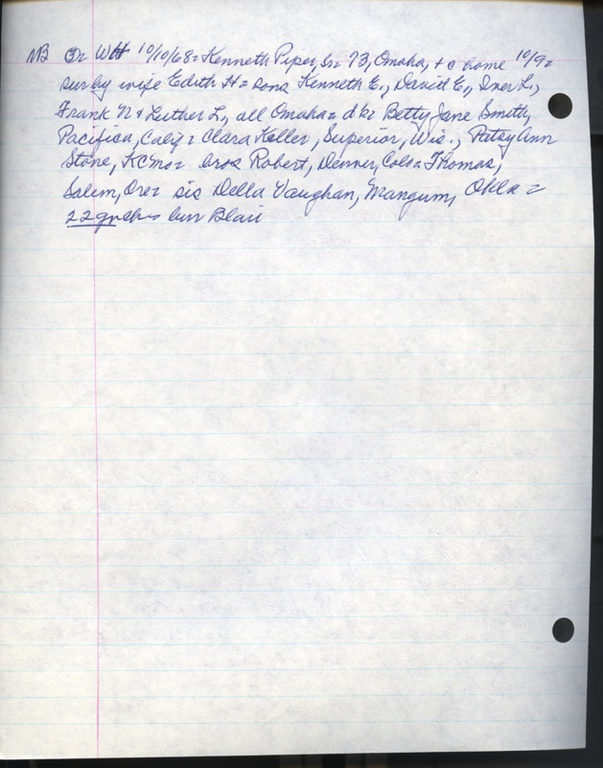 NB Or WH 10/10/68 = Kenneth Piper, Sr 73, Omaha, + c home 10/9 =
sur by wife Edith H = sons Kenneth E., David E., Iner L.,
Frank N + Luther L., all Omaha = dks Betty Jane Smith,
Pacifica, Calif = Clara Keller, Superior, Wis., Patsy Ann
Stone, KCMo = bros Robert, Denver, Colo = Thomas,
Salem, Ore = sis Della Vaughan, Mangum, Okla =
22 gndch = bur Blair